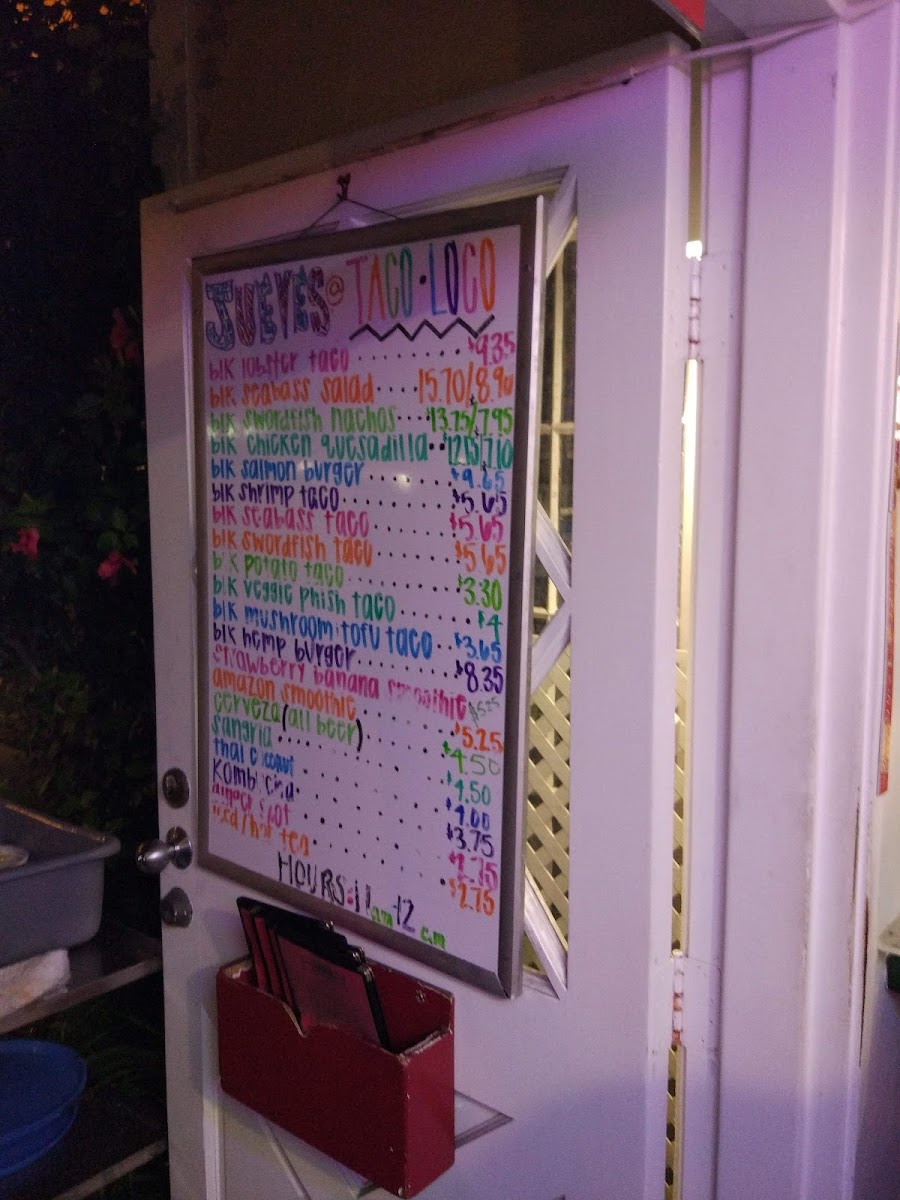 JUEVES@ TACO·LOCO
blk lobster taco ....... $9.35
blk seabass salad .... 15.70/8.90
blk swordfish nachos .... 13.75/7.95
blk chicken quesadilla .. 12.15/7.10
blk salmon burger ..... $9.65
blk shrimp taco ....... $5.65
blk seabass taco ...... $5.65
blk swordfish taco ..... $5.65
blk potato taco ....... $3.30
blk veggie phish taco ..... $4
blk mushroom tofu taco .. $3.65
blk hemp burger ........ $8.35
strawberry banana smoothie $5.25
amazon smoothie ..... $5.25
cerveza (all beer) .... $4.50
sangria ........ $4.50
thai coconut ....... $4.00
kombucha ....... $3.75
ginger shot
iced/hot tea ....... $2.75
HOURS: 11am-12am